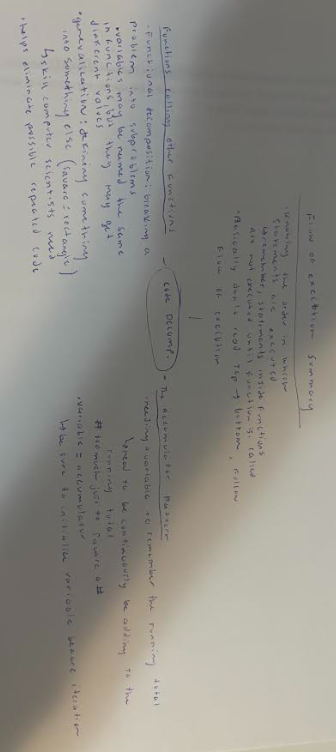 Flow of execution summary
- Knowing the order in which
statements are executed
↳ remember, statements inside functions
are not executed until function is called
• Basically don't read top → bottom, follow
flow of execution
Code Decomp.
Functions calling other functions
• functional decomposition: breaking a
problem into subproblems
• variables may be named the same
in functions, but they may get
different values
• generalization: turning something
into something else (square = rectangle)
↳ skill computer scientists need
• helps eliminate possible repeated code
- The Accumulator Pattern
- needing a variable to remember the running total
↳ need to be continuously be adding to the
running total
to square a #
• variable = accumulator
↳ be sure to initialize variable before iteration